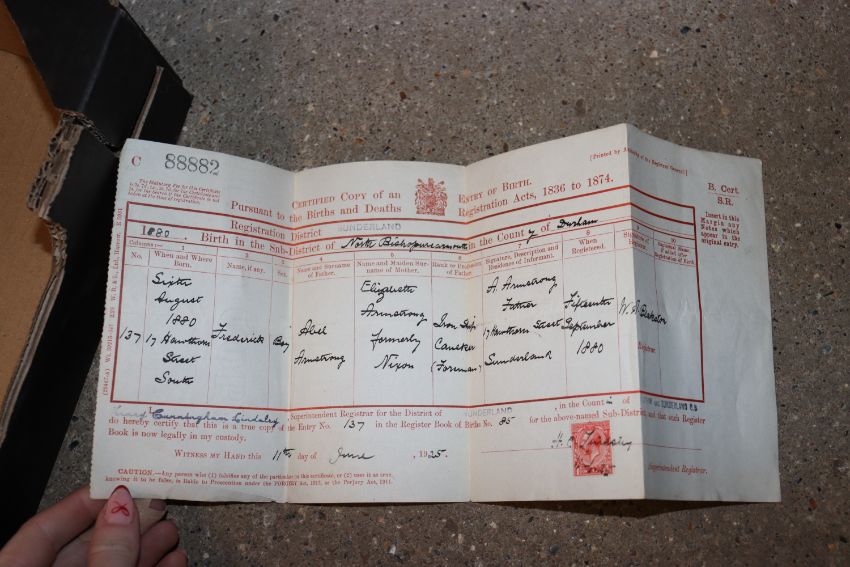 C 88882
CERTIFIED COPY OF AN ENTRY OF BIRTH.
[Printed by Authority of the Registrar General.]
B. Cert.
S.R.
Pursuant to the Births and Deaths Registration Acts, 1836 to 1874.
Insert in this
Margin any
Notes which
appear in the
original entry.
Registration District SUNDERLAND
1880. Birth in the Sub-District of North Bishopwearmouth in the County of Durham
Columns:— 1 2 3 4 5 6 7 8 10
No. When and Where Born. Name, if any. Sex. Name and Surname of Father. Name and Maiden Surname of Mother. Rank or Profession of Father. Signature, Description and Residence of Informant. When Registered. Signature of Registrar
137
Sixth
August
1880
17 Hawthorn
Street
South
Frederick
Boy
Abel
Armstrong
Elizabeth
Armstrong
formerly
Nixon
Iron Ship
Caulker
(Foreman)
A. Armstrong
Father
17 Hawthorn Street
Sunderland
Fifteenth
September
1880
Registrar
Cunningham Lindsley, Superintendent Registrar for the District of SUNDERLAND, in the County of
do hereby certify that this is a true copy of the Entry No. 137 in the Register Book of Births No. 85 for the above-named Sub-District, and that such Register
Book is now legally in my custody.
WITNESS MY HAND this 11th day of June, 1925.
Superintendent Registrar.
CAUTION.—Any person who (1) falsifies any of the particulars in this certificate, or (2) uses it as true,
knowing it to be false, is liable to Prosecution under the FORGERY Act, 1913, or the Perjury Act, 1911.